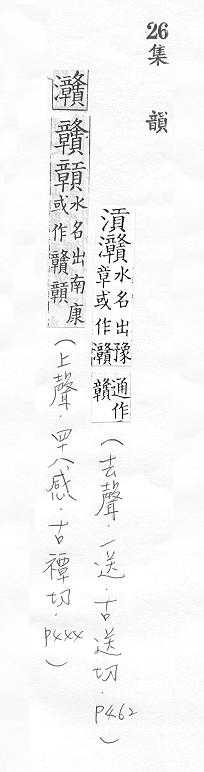 26集韻
灨水名出豫章或作灨通作贛(去聲·一送·古送切·P462)
灨贛水名出南康或作(上聲·四八感·古禫切·P444)